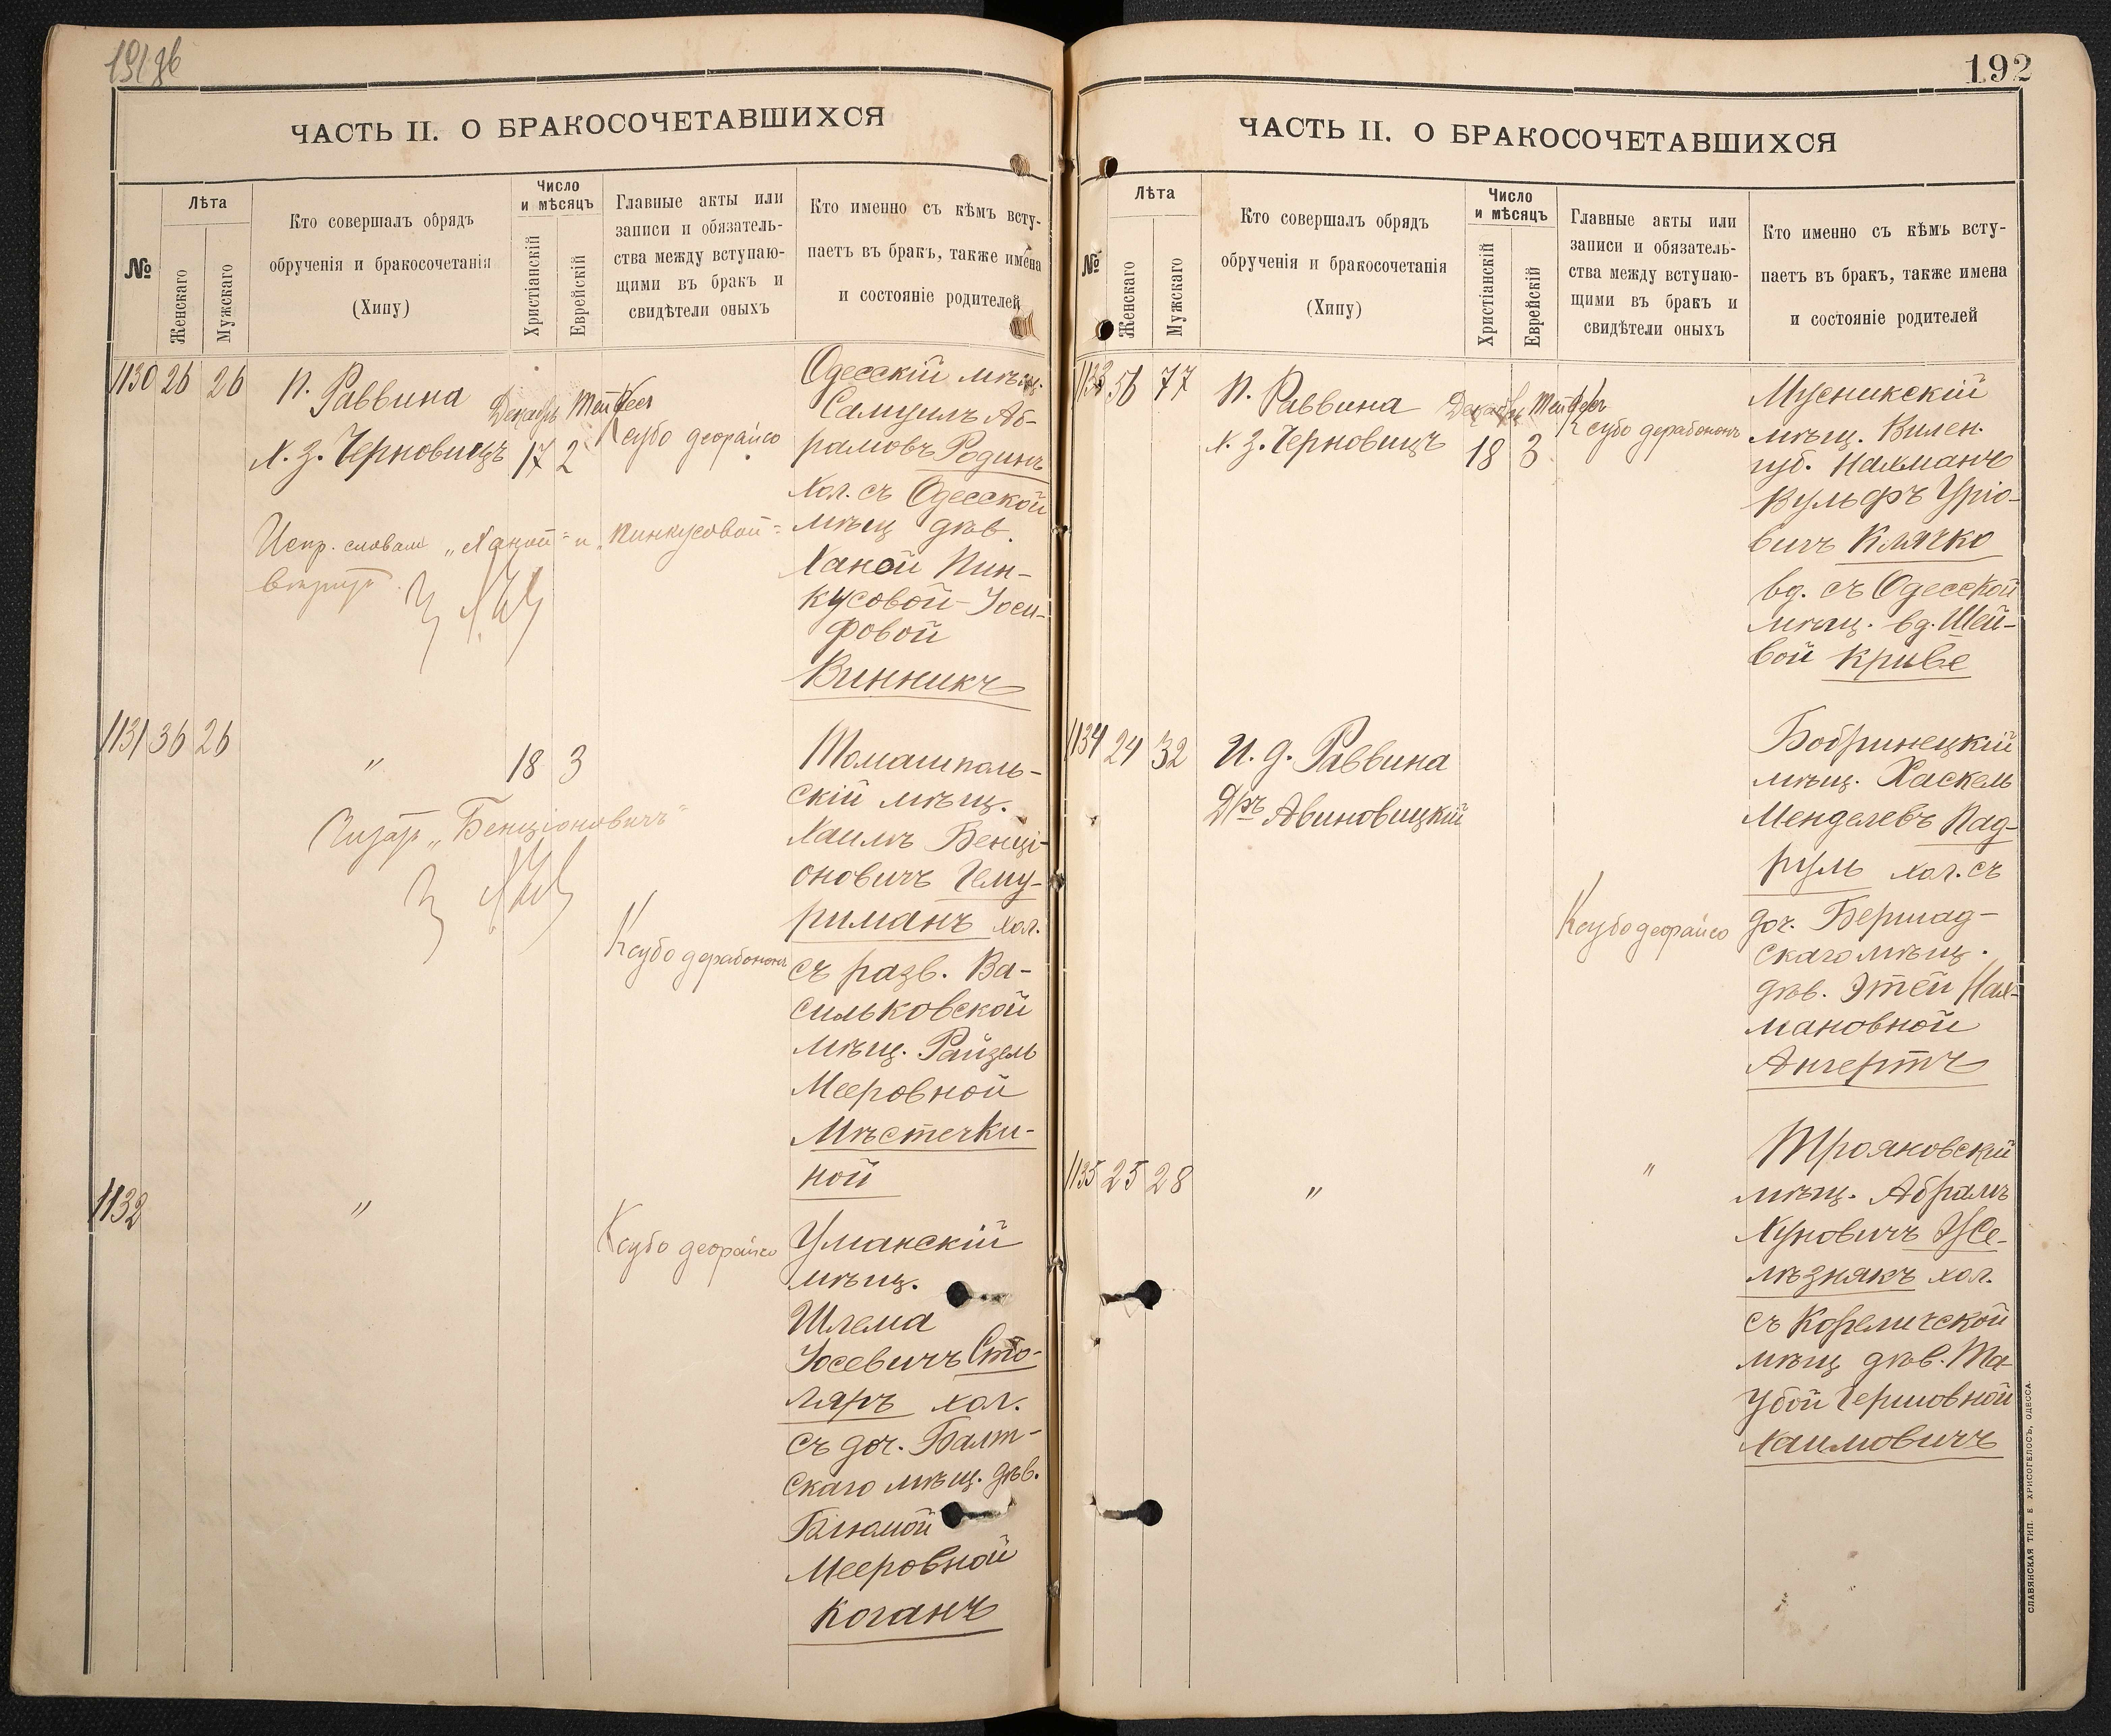 192
ЧАСТЬ II. О БРАКОСОЧЕТАВШИХСЯ
№
Лѣта
Женскаго
Мужскаго
Кто совершалъ обрядъ
обрученія и бракосочетанія
(Хипу)
Число
и мѣсяцъ
Христіанскій
Еврейскій
Главные акты или
записи и обязатель-
ства между вступаю-
щими въ бракъ и
свидѣтели оныхъ
Кто именно съ кѣмъ всту-
паетъ въ бракъ, также имена
и состояніе родителей
1130 26 26
П. Раввина
Х. З. Черновицъ
Декабрь
17 2
Ксубо деорайсо
Одесскій мѣщ.
Самуилъ Аб-
рамовъ Родинъ
хол. съ Одесской
мѣщ дѣв.
Ханой Пин-
кусовой-Іоси-
фовой
Винникъ
Испр. словам „Ханой" и „Пинкусовой"
1131 36 26
"
18 3
Ксубо дерабононъ
Томашполь-
скій мѣщ.
Хаимъ Бенці-
оновичъ Гему-
риманъ хол.
съ разв. Ва-
сильковской
мѣщ. Райзель
Мееровной
Мѣстечки-
ной
„Бенціоновичъ"
1132
"
Ксубо деорайсо
Уманскій
мѣщ.
Шлема
Іосевичъ Сто-
ляръ хол.
съ доч. Балт-
скаго мѣщ. дѣв.
Блюмой
Мееровной
Коганъ
ЧАСТЬ II. О БРАКОСОЧЕТАВШИХСЯ
№
Лѣта
Женскаго
Мужскаго
Кто совершалъ обрядъ
обрученія и бракосочетанія
(Хипу)
Число
и мѣсяцъ
Христіанскій
Еврейскій
Главные акты или
записи и обязатель-
ства между вступаю-
щими въ бракъ и
свидѣтели оныхъ
Кто именно съ кѣмъ всту-
паетъ въ бракъ, также имена
и состояніе родителей
1133 56 77
П. Раввина
Х. З. Черновицъ
Декабрь
18 3
Ксубо дерабононъ
Мусникскій
мѣщ. Вилен.
губ. Нахманъ
Вульфъ Уріо-
вичъ Клячко
вд. съ Одесской
мѣщ. вд. Шей-
вой Криве
1134 24 32
И. д. Раввина
Д/ръ Авиновицкій
Ксубо деорайсо
Бобринецкій
мѣщ. Хаскель
Менделевъ Пад-
руль хол. съ
доч. Бершад-
скаго мѣщ.
дѣв. Этей Нах-
мановной
Ангертъ
1135 25 28
"
"
Трояновскій
мѣщ. Абрамъ
Хуновичъ Же-
лѣзнякъ хол.
съ Кореличской
мѣщ дѣв. Та-
убой Гершовной
Хаимовичъ
СЛАВЯНСКАЯ ТИП. Е. ХРИСОГЕЛОСЪ, ОДЕССА.